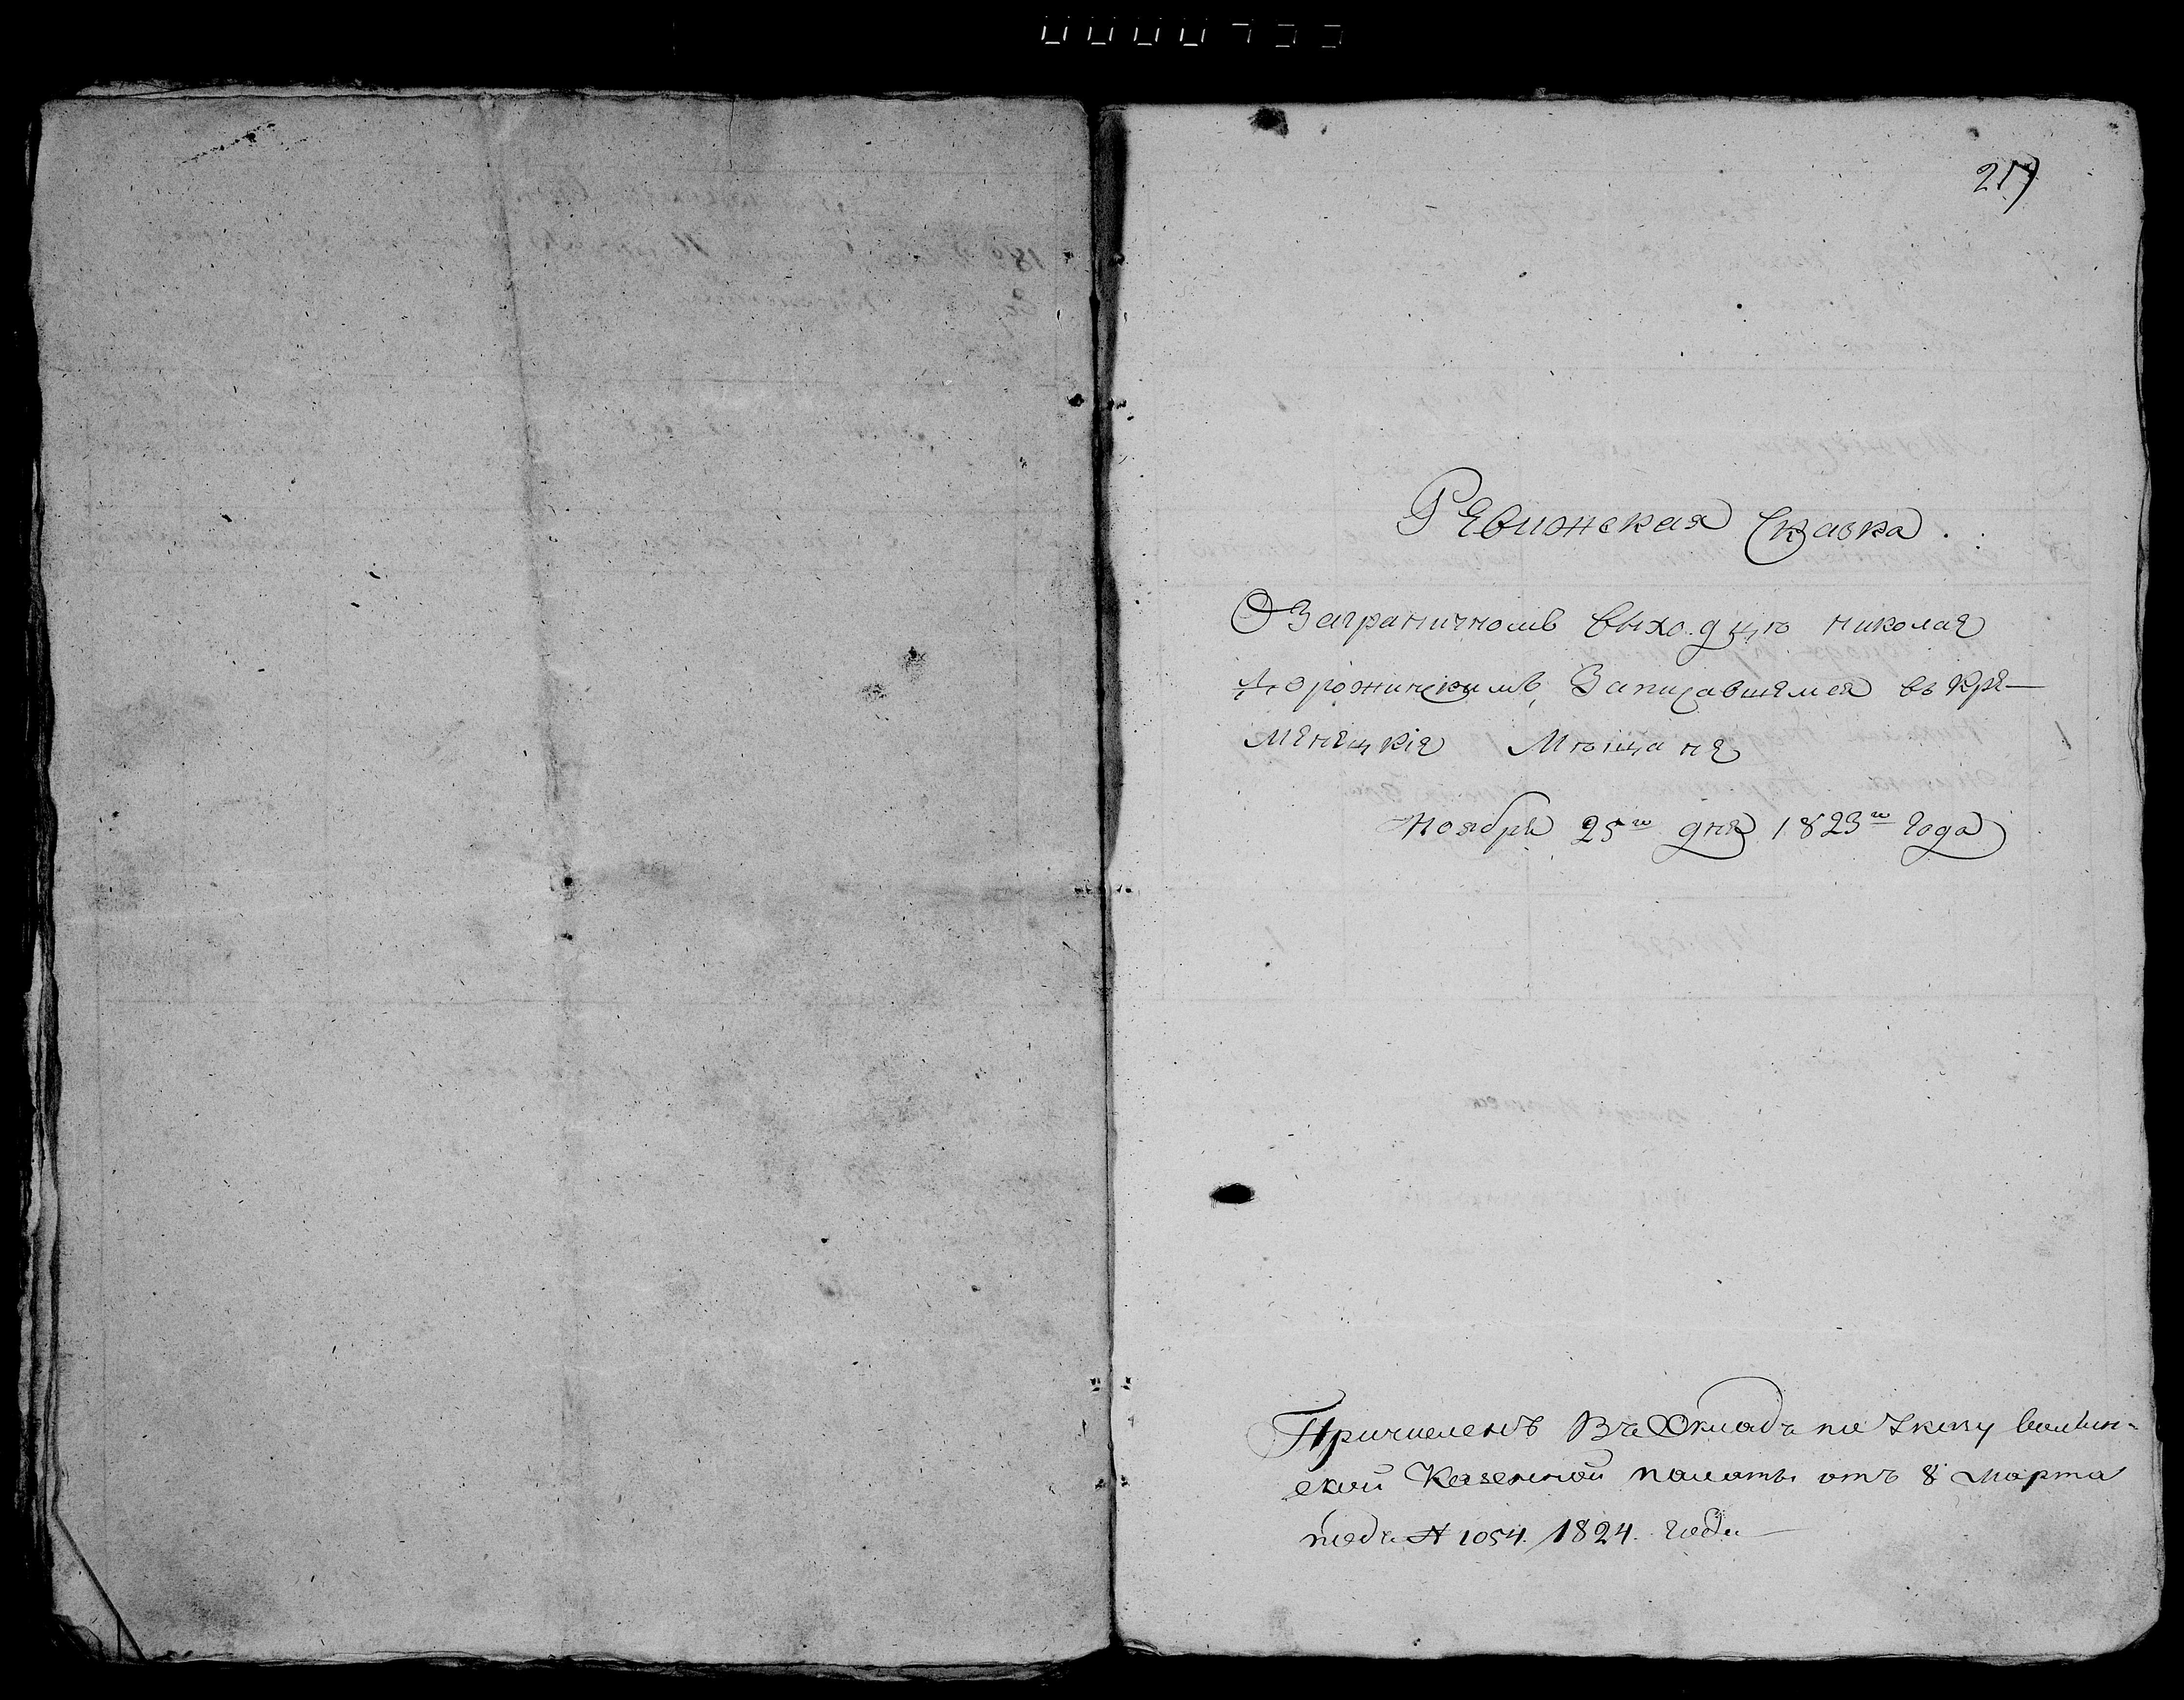 217
Ревижская Сказка.
О Заграничномъ выходцю николае
Дорожинскимъ, Записавшемся въ Кре-
менецкіе Мющане
Ноября 25го дня 1823го года
Причисленъ Въ Окладъ по Указу волын-
ской Казенной палаты отъ 8 марта
подъ № 1054. 1824. года